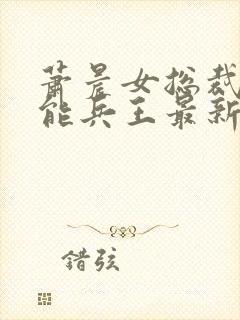 萧晨女总裁
能兵王最新
错弦